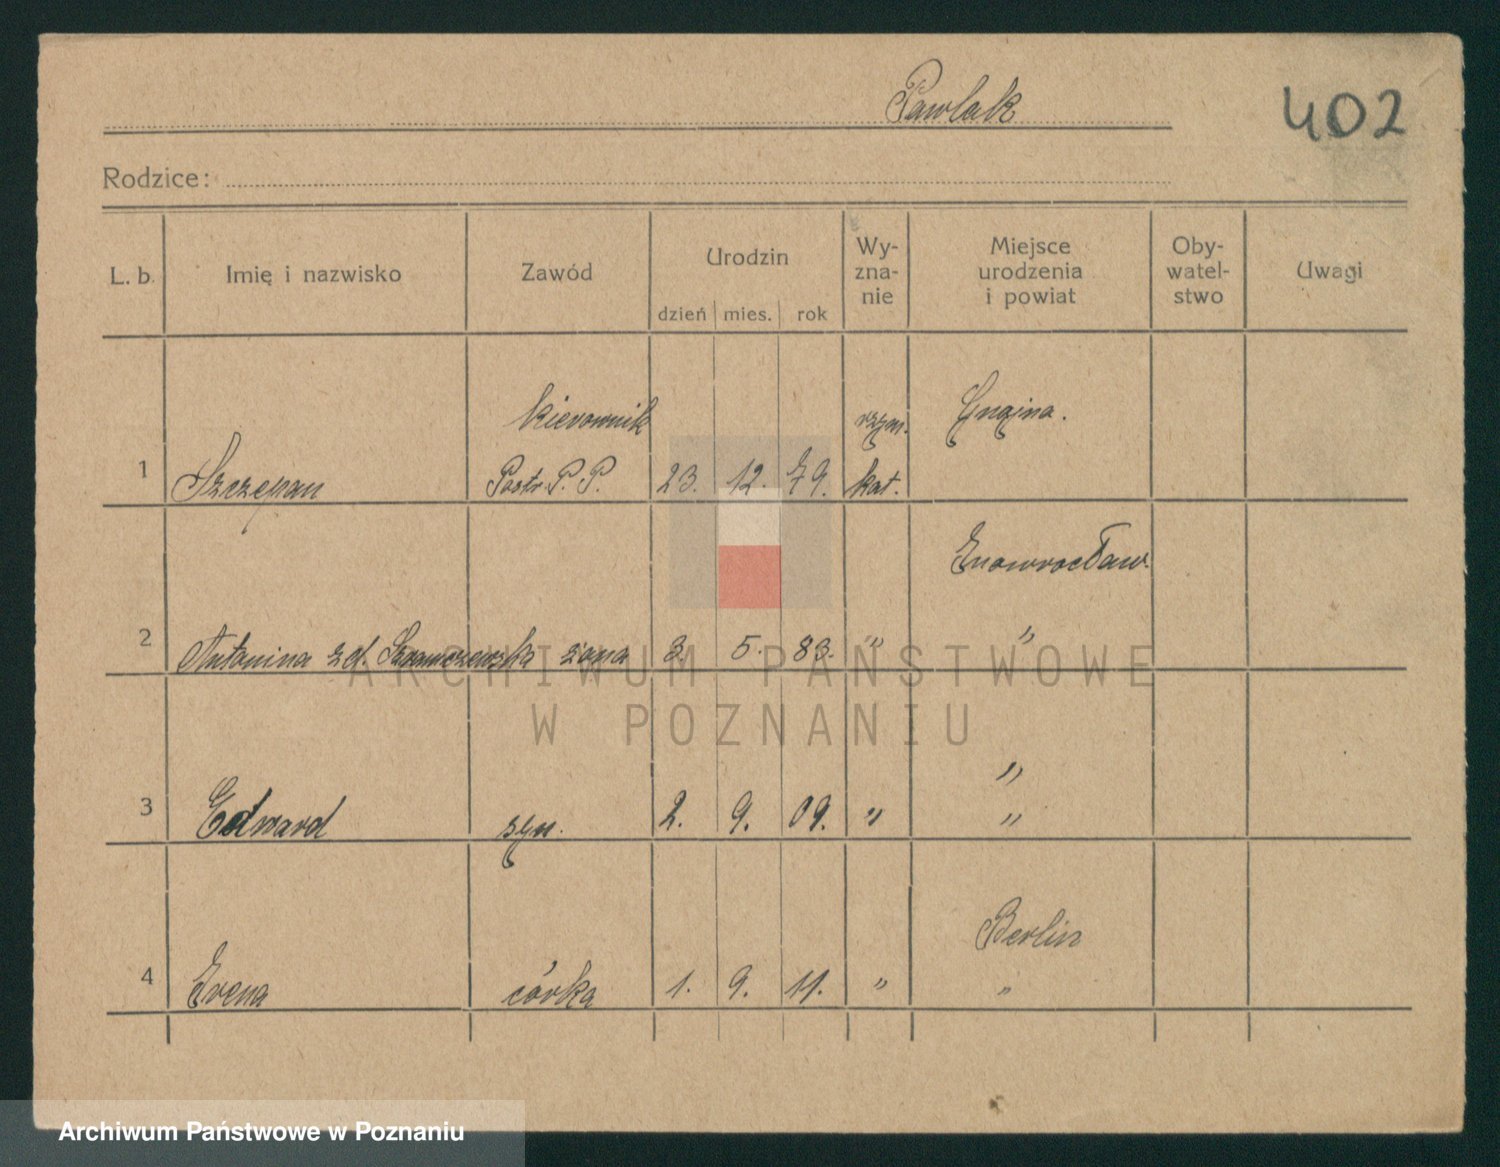 Pawlak
402
Rodzice:
L. b. Imię i nazwisko Zawód Urodzin Wy-zna-nie Miejsce urodzenia i powiat Oby-watel-stwo Uwagi
dzień mies. rok
kierownik rzym. Gnojna.
1 Szczepan Postr. P. P. 23. 12. 79. kat.
Inowrocław.
2 Antonina zd. żona 3. 5. 83. " "
"
3 Edward syn. 2. 9. 09. " "
Berlin
4 Irena córka 1. 9. 11. " "
ARCHIWUM PAŃSTWOWE
W POZNANIU
Archiwum Państwowe w Poznaniu